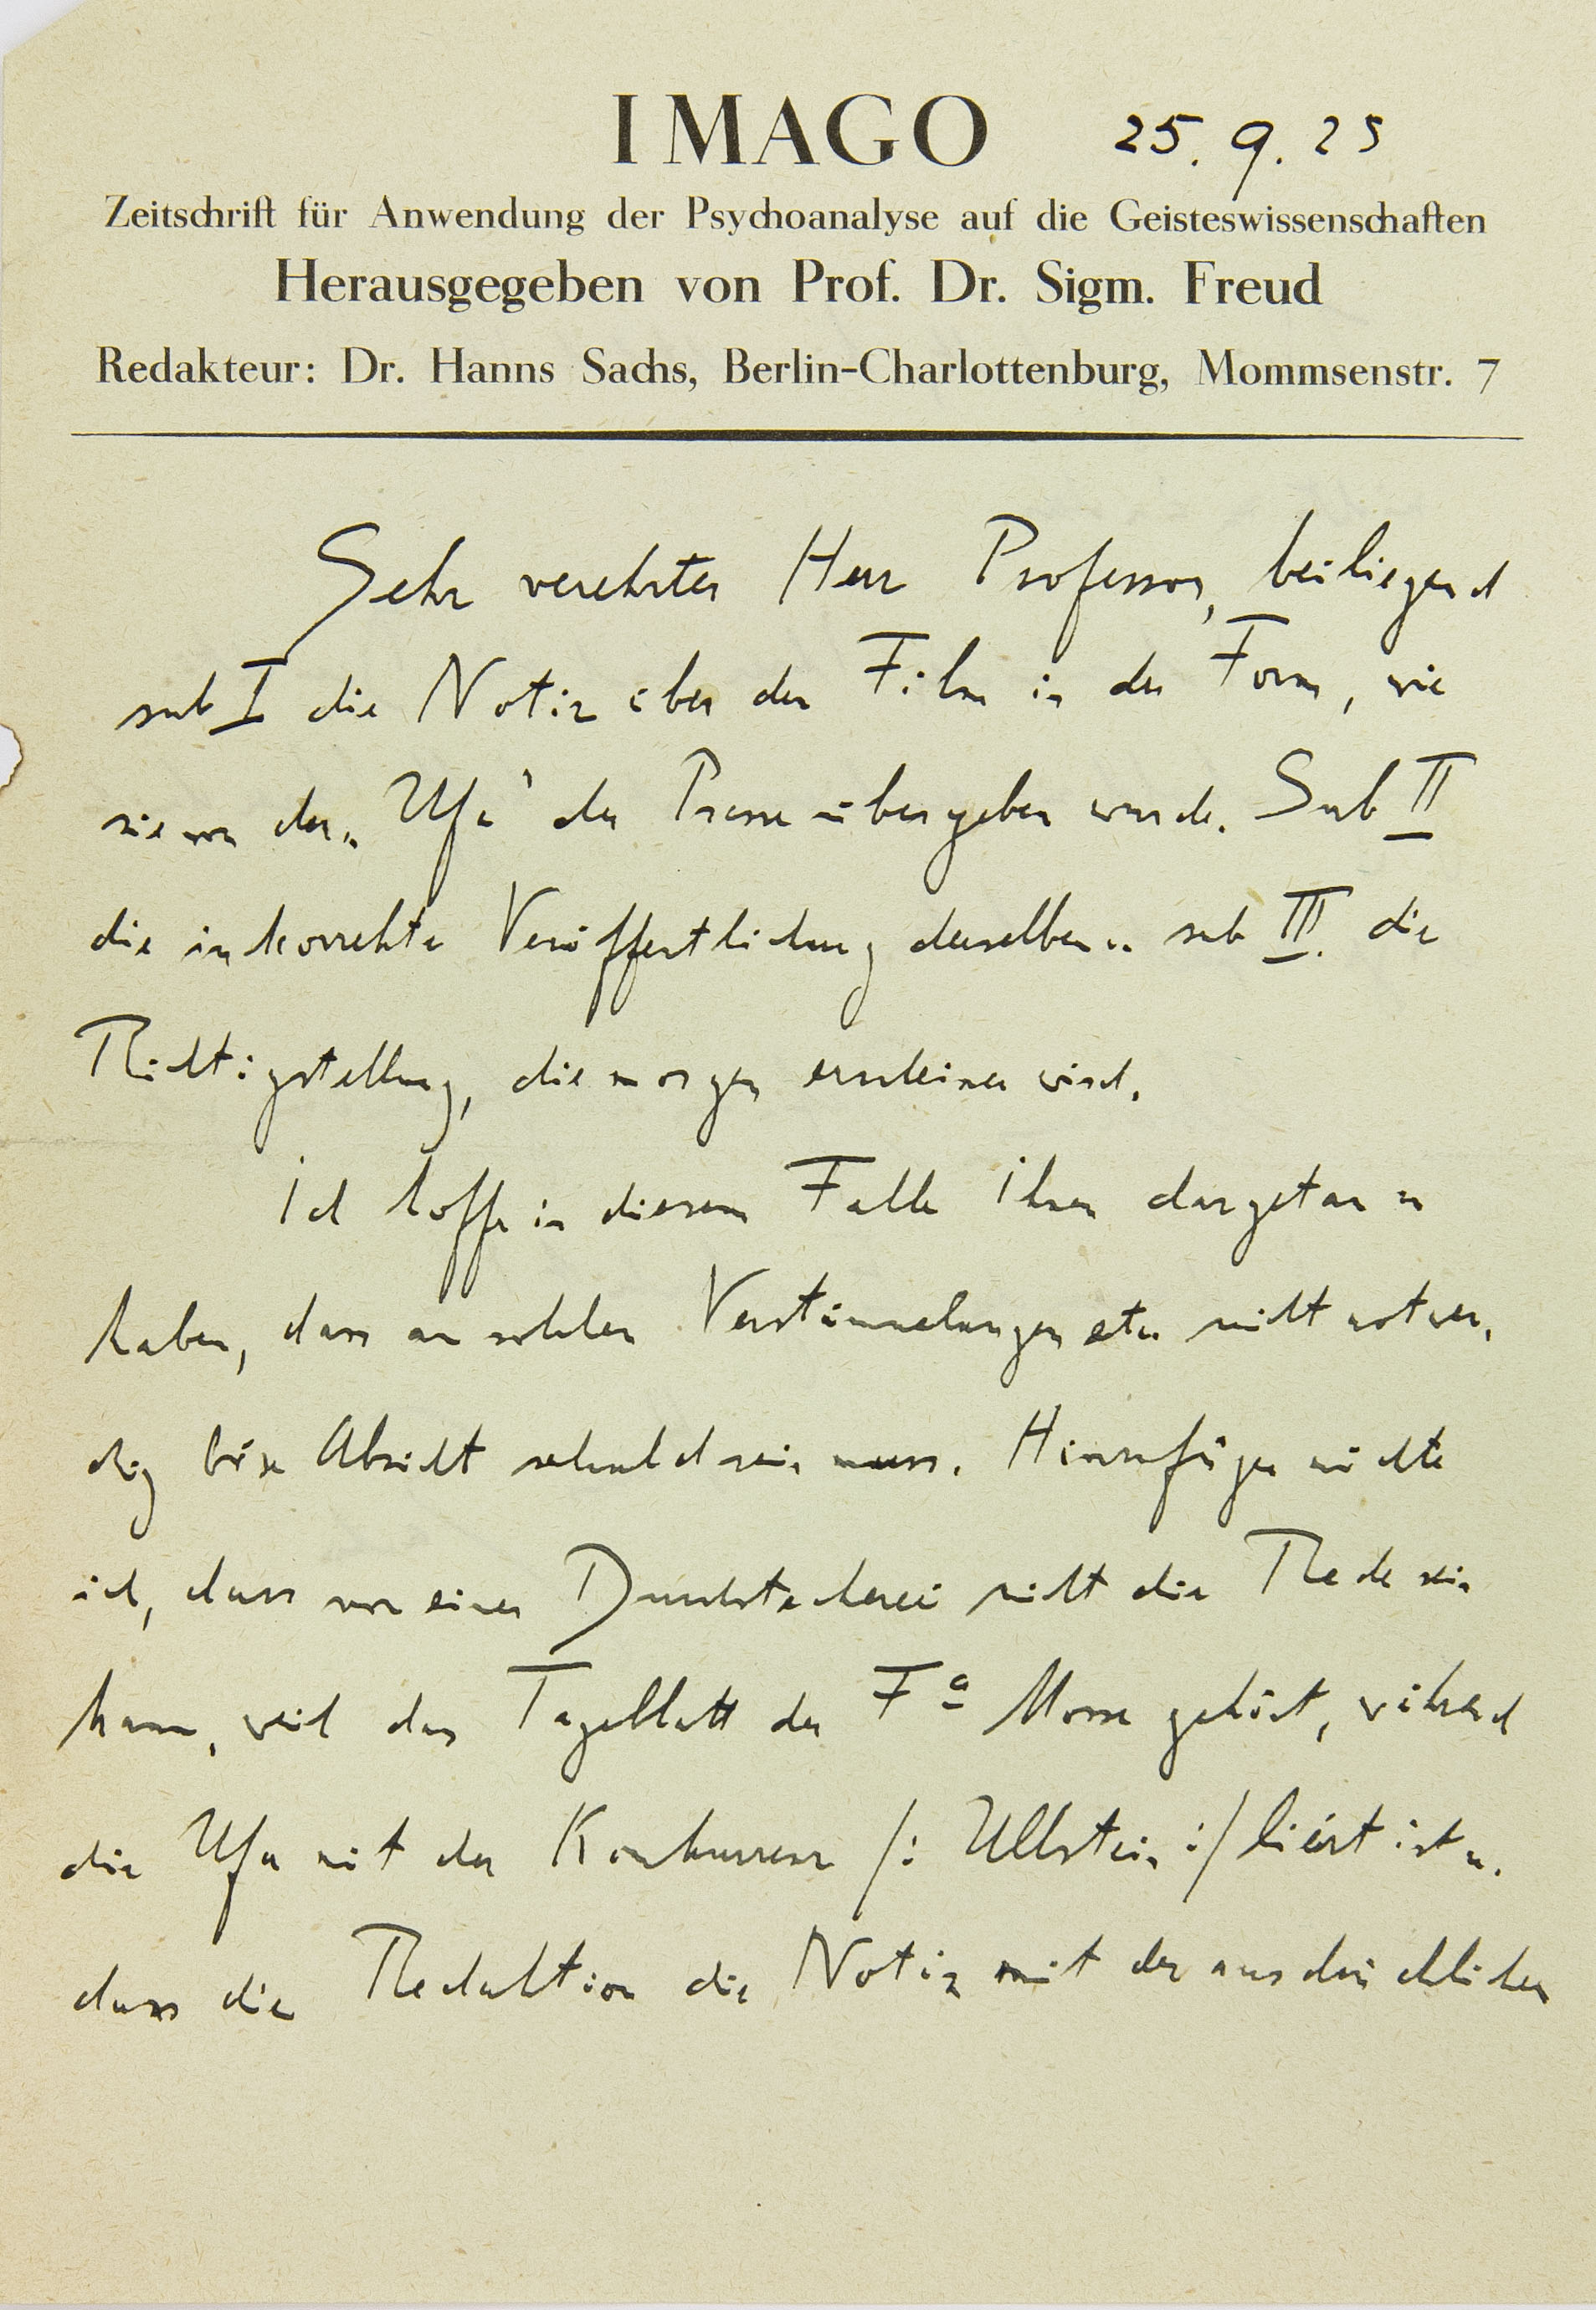 IMAGO 25. 9. 25
Zeitschrift für Anwendung der Psychoanalyse auf die Geisteswissenschaften
Herausgegeben von Prof. Dr. Sigm. Freud
Redakteur: Dr. Hanns Sachs, Berlin-Charlottenburg, Mommsenstr. 7
Sehr verehrter Herr Professor, beiliegend
sub I die Notiz über den Film in der Form, wie
sie von der „Ufa" der Presse übergeben wurde. Sub II
die inkorrekte Veröffentlichung derselben u. sub III. die
Richtigstellung, die morgen erscheinen wird.
Ich hoffe in diesem Falle Ihnen dargetan zu
haben, dass an solchen Verstümmelungen etc nicht notwen-
dig böse Absicht schuld sein muss. Hinzufügen möchte
ich, dass von einer Durchstecherei nicht die Rede sein
kann, weil das Tageblatt der Fa Mosse gehört, während
die Ufa mit der Konkurrenz /: Ullstein :/ liiert ist u.
dass die Redaktion die Notiz mit der ausdrücklichen